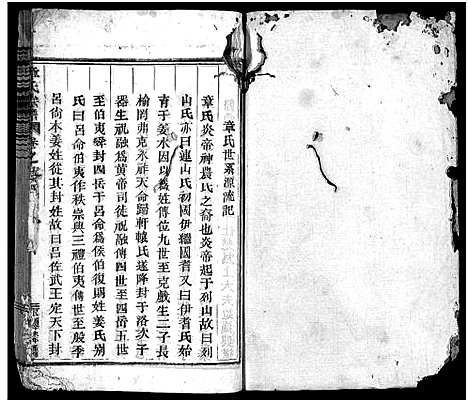 章氏世系源流記
章氏炎帝神農氏之裔也炎帝起于列山故曰列
山氏亦曰連山氏初國伊繼國耆又曰伊耆氏始
育于姜水因以爲姓傳位九世至克戲生二子長
榆罔弗克永祚天命歸軒轅氏遂降封于洛次子
器生祝融爲黃帝司徒祝融傳四世至四岳五世
至伯夷舜封四岳于呂命爲侯伯復賜姓姜氏別
氏曰呂命伯夷作秩宗典三禮伯夷傳世至殷季
呂尙本姜姓從其封姓故曰呂佐武王定天下封
章氏宗譜 卷之